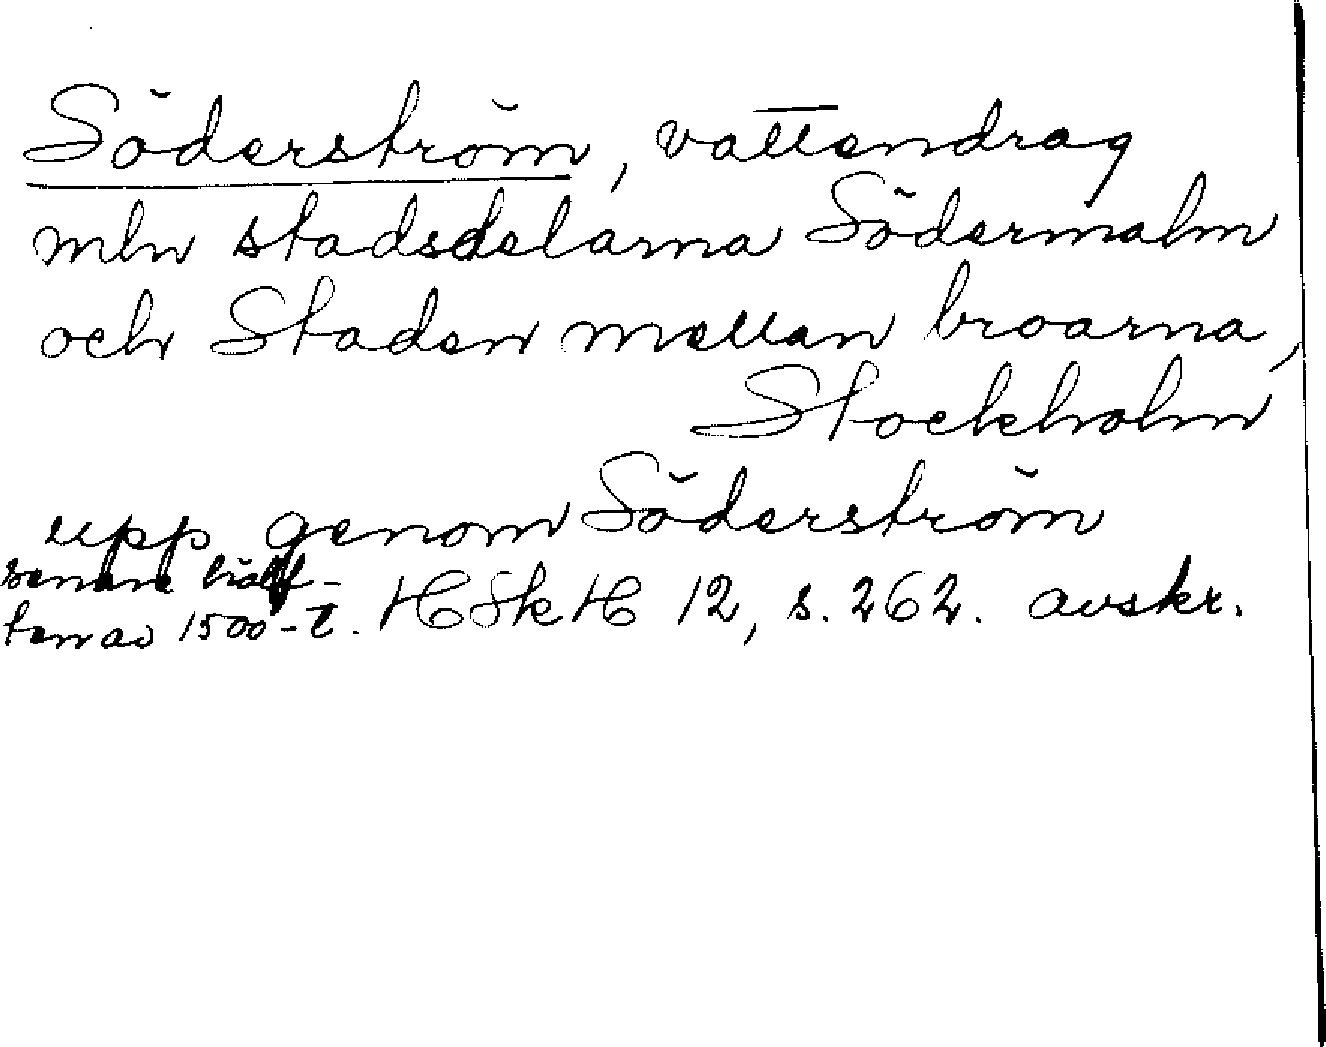 Söderström, vattendrag
mln stadsdelarna Södermalm
och Staden mellan broarna,
Stockholm
upp genom Söderström
senare hälf-
ten av 1500-t. HSkH 12, s. 262. avskr.